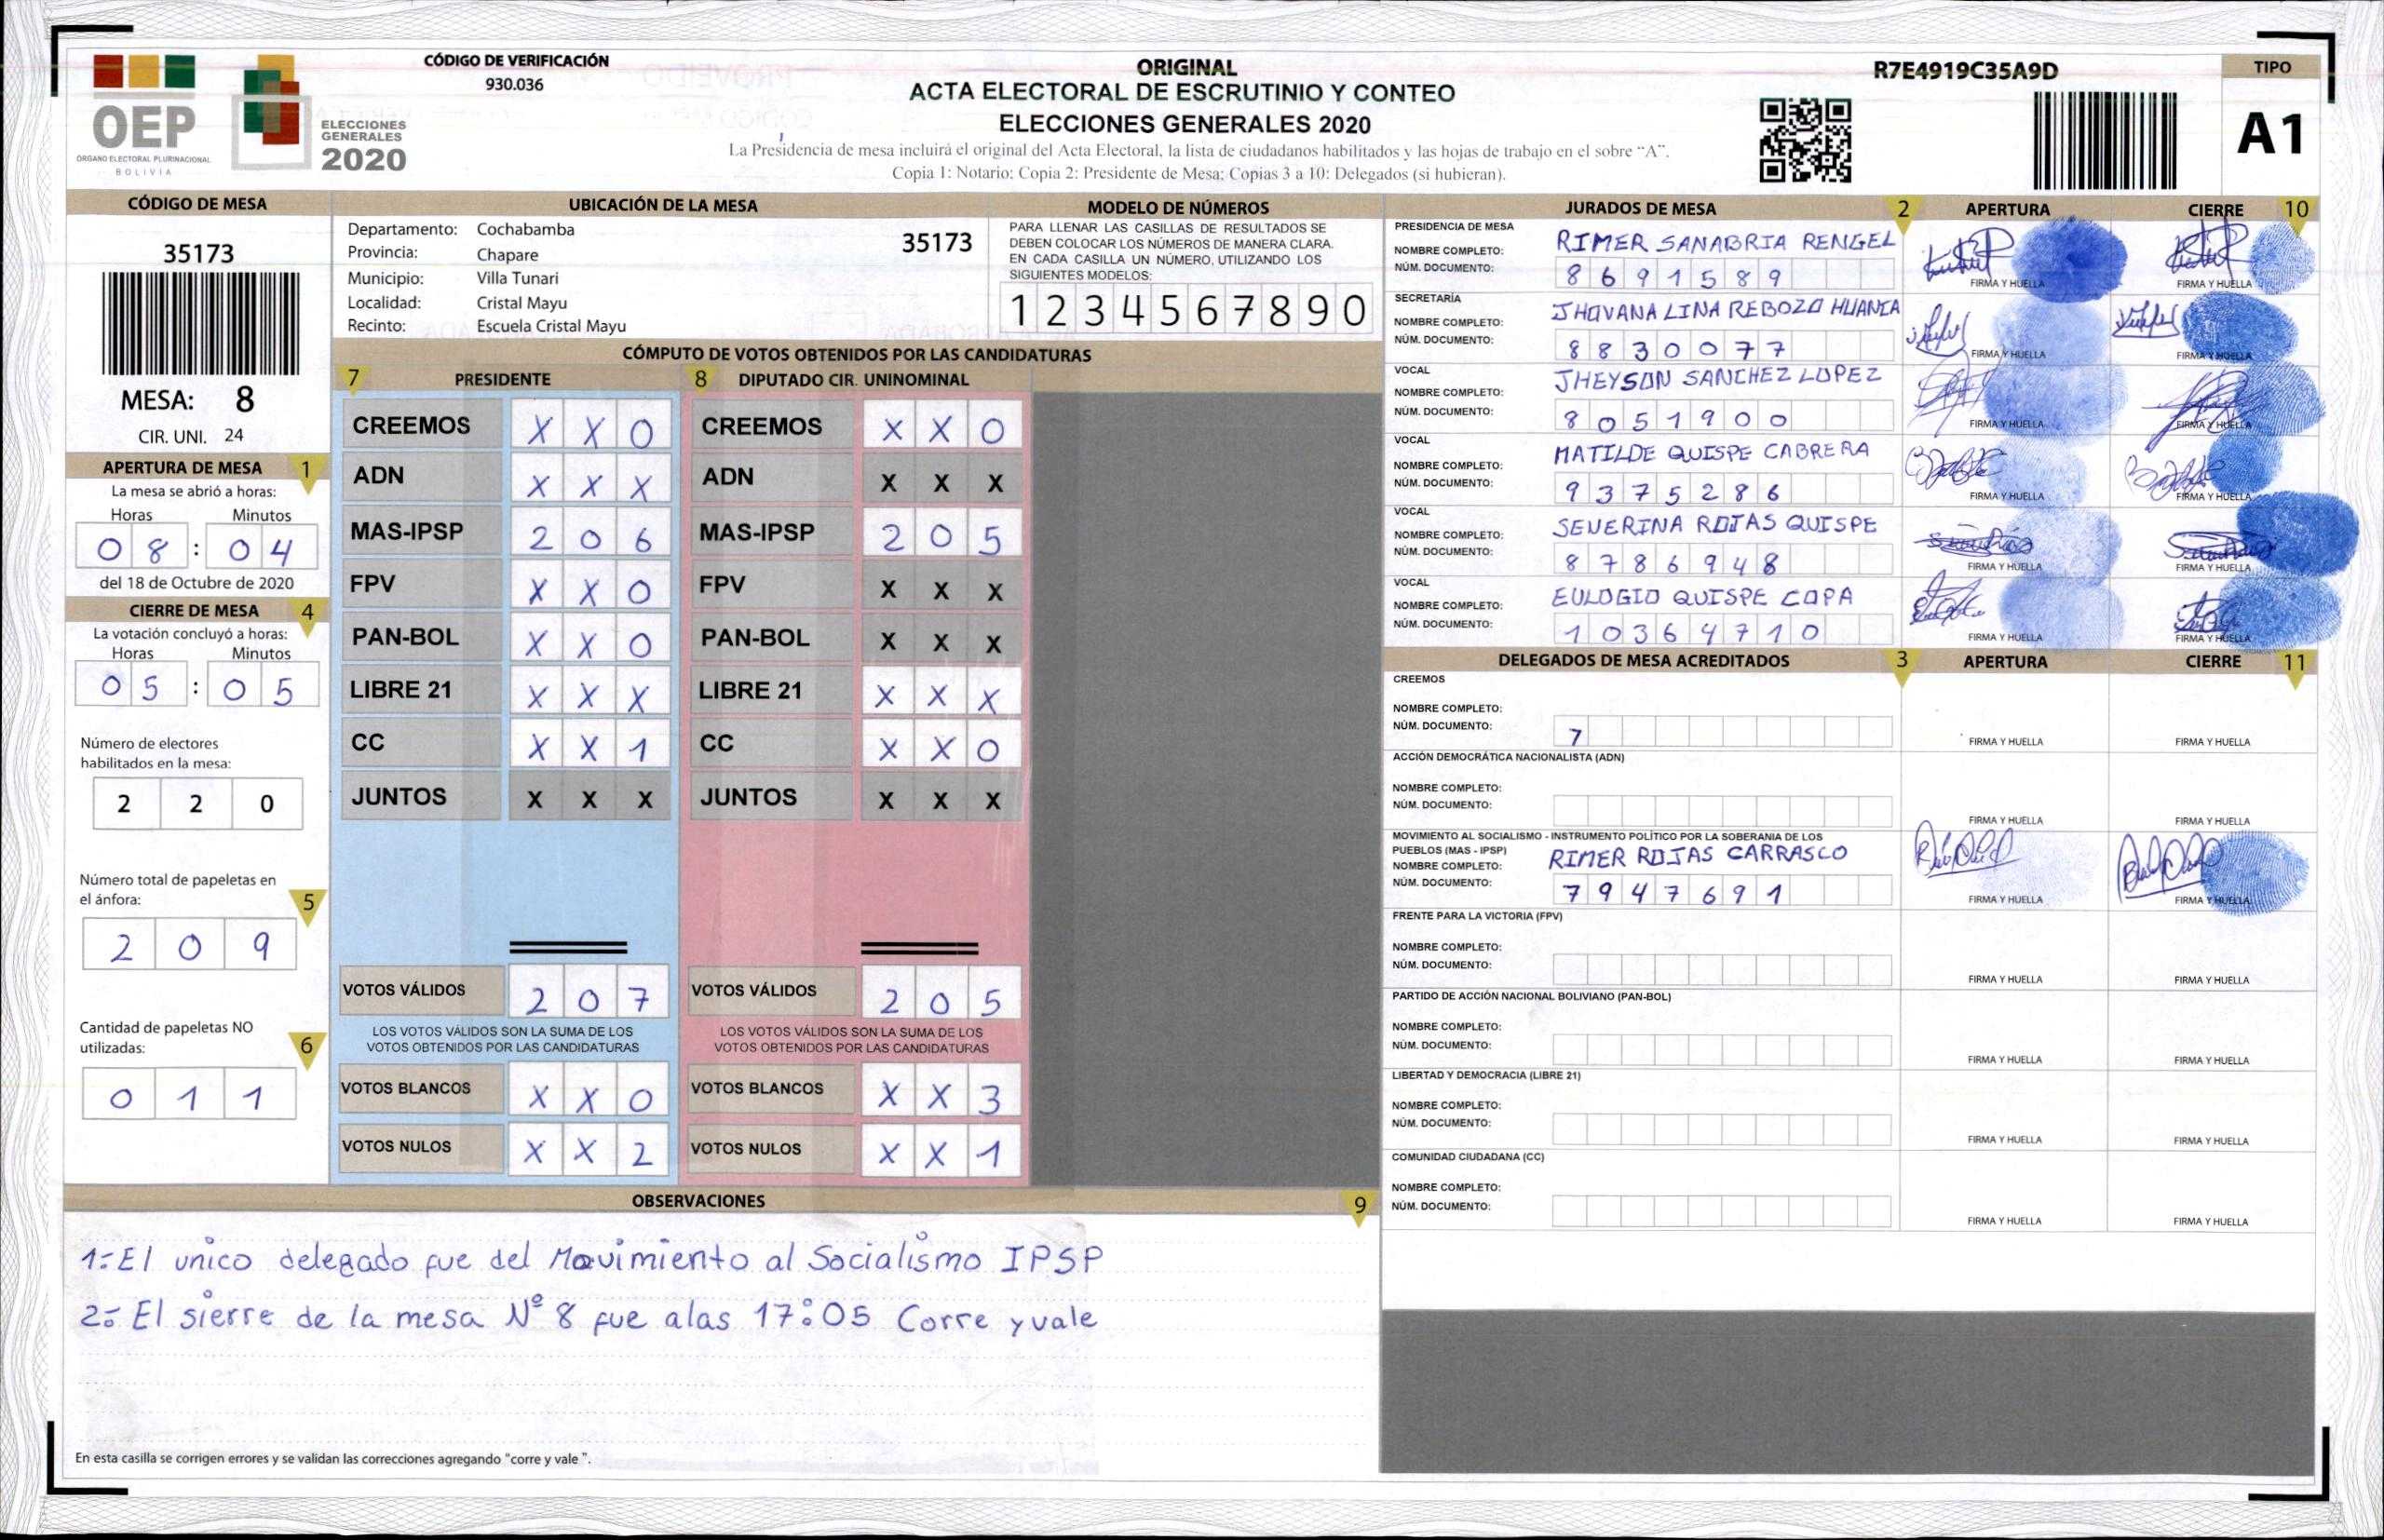 CÓDIGO DE VERIFICACIÓN
930.036
OEP
ORGANO ELECTORAL PLURINACIONAL
BOLIVIA
ELECCIONES
GENERALES
2020
ORIGINAL
ACTA ELECTORAL DE ESCRUTINIO Y CONTEO
ELECCIONES GENERALES 2020
La Presidencia de mesa incluirá el original del Acta Electoral, la lista de ciudadanos habilitados y las hojas de trabajo en el sobre “A”.
Copia 1: Notario; Copia 2: Presidente de Mesa; Copias 3 a 10: Delegados (si hubieran).
R7E4919C35A9D
TIPO
A1
CÓDIGO DE MESA
35173
MESA: 8
CIR. UNI. 24
APERTURA DE MESA 1
La mesa se abrió a horas:
Horas Minutos
0 8 : 0 4
del 18 de Octubre de 2020
CIERRE DE MESA 4
La votación concluyó a horas:
Horas Minutos
0 5 : 0 5
Número de electores
habilitados en la mesa:
2 2 0
Número total de papeletas en
el ánfora: 5
2 0 9
Cantidad de papeletas NO
utilizadas: 6
0 1 1
UBICACIÓN DE LA MESA
Departamento: Cochabamba
35173
Provincia: Chapare
Municipio: Villa Tunari
Localidad: Cristal Mayu
Recinto: Escuela Cristal Mayu
MODELO DE NÚMEROS
PARA LLENAR LAS CASILLAS DE RESULTADOS SE
DEBEN COLOCAR LOS NÚMEROS DE MANERA CLARA.
EN CADA CASILLA UN NÚMERO, UTILIZANDO LOS
SIGUIENTES MODELOS:
1 2 3 4 5 6 7 8 9 0
CÓMPUTO DE VOTOS OBTENIDOS POR LAS CANDIDATURAS
7 PRESIDENTE 8 DIPUTADO CIR. UNINOMINAL
CREEMOS X X 0 CREEMOS X X 0
ADN X X X ADN X X X
MAS-IPSP 2 0 6 MAS-IPSP 2 0 5
FPV X X 0 FPV X X X
PAN-BOL X X 0 PAN-BOL X X X
LIBRE 21 X X X LIBRE 21 X X X
CC X X 1 CC X X 0
JUNTOS X X X JUNTOS X X X
VOTOS VÁLIDOS 2 0 7 VOTOS VÁLIDOS 2 0 5
LOS VOTOS VÁLIDOS SON LA SUMA DE LOS LOS VOTOS VÁLIDOS SON LA SUMA DE LOS
VOTOS OBTENIDOS POR LAS CANDIDATURAS VOTOS OBTENIDOS POR LAS CANDIDATURAS
VOTOS BLANCOS X X 0 VOTOS BLANCOS X X 3
VOTOS NULOS X X 2 VOTOS NULOS X X 1
OBSERVACIONES 9
1.- El unico delegado fue del Movimiento al Socialismo IPSP
2.- El sierre de la mesa Nº 8 fue alas 17:05 Corre y vale
En esta casilla se corrigen errores y se validan las correcciones agregando "corre y vale ".
JURADOS DE MESA 2 APERTURA CIERRE 10
PRESIDENCIA DE MESA
NOMBRE COMPLETO: RIMER SANABRIA RENGEL
NÚM. DOCUMENTO: 8 6 9 1 5 8 9
FIRMA Y HUELLA FIRMA Y HUELLA
SECRETARÍA
NOMBRE COMPLETO: JHOVANA LINA REBOZO HUANIA
NÚM. DOCUMENTO: 8 8 3 0 0 7 7
FIRMA Y HUELLA FIRMA Y HUELLA
VOCAL
NOMBRE COMPLETO: JHEYSON SANCHEZ LOPEZ
NÚM. DOCUMENTO: 8 0 5 1 9 0 0
FIRMA Y HUELLA FIRMA Y HUELLA
VOCAL
NOMBRE COMPLETO: MATILDE QUISPE CABRERA
NÚM. DOCUMENTO: 9 3 7 5 2 8 6
FIRMA Y HUELLA FIRMA Y HUELLA
VOCAL
NOMBRE COMPLETO: SEVERINA ROJAS QUISPE
NÚM. DOCUMENTO: 8 7 8 6 9 4 8
FIRMA Y HUELLA FIRMA Y HUELLA
VOCAL
NOMBRE COMPLETO: EULOGIO QUISPE COPA
NÚM. DOCUMENTO: 1 0 3 6 4 7 1 0
FIRMA Y HUELLA FIRMA Y HUELLA
DELEGADOS DE MESA ACREDITADOS 3 APERTURA CIERRE 11
CREEMOS
NOMBRE COMPLETO:
NÚM. DOCUMENTO: 7
FIRMA Y HUELLA FIRMA Y HUELLA
ACCIÓN DEMOCRÁTICA NACIONALISTA (ADN)
NOMBRE COMPLETO:
NÚM. DOCUMENTO:
FIRMA Y HUELLA FIRMA Y HUELLA
MOVIMIENTO AL SOCIALISMO - INSTRUMENTO POLÍTICO POR LA SOBERANIA DE LOS
PUEBLOS (MAS - IPSP)
NOMBRE COMPLETO: RIMER ROJAS CARRASCO
NÚM. DOCUMENTO: 7 9 4 7 6 9 1
FIRMA Y HUELLA FIRMA Y HUELLA
FRENTE PARA LA VICTORIA (FPV)
NOMBRE COMPLETO:
NÚM. DOCUMENTO:
FIRMA Y HUELLA FIRMA Y HUELLA
PARTIDO DE ACCIÓN NACIONAL BOLIVIANO (PAN-BOL)
NOMBRE COMPLETO:
NÚM. DOCUMENTO:
FIRMA Y HUELLA FIRMA Y HUELLA
LIBERTAD Y DEMOCRACIA (LIBRE 21)
NOMBRE COMPLETO:
NÚM. DOCUMENTO:
FIRMA Y HUELLA FIRMA Y HUELLA
COMUNIDAD CIUDADANA (CC)
NOMBRE COMPLETO:
NÚM. DOCUMENTO:
FIRMA Y HUELLA FIRMA Y HUELLA